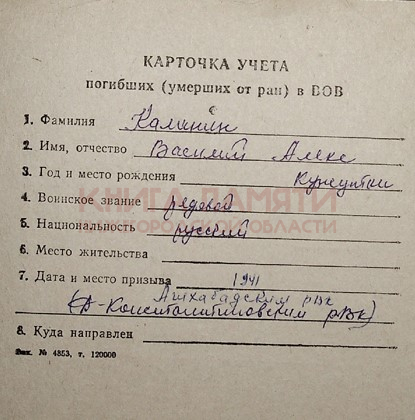 КАРТОЧКА УЧЕТА
погибших (умерших от ран) в ВОВ
1. Фамилия Калинин
2. Имя, отчество Василий Алекс
3. Год и место рождения
КНИГА ПАМЯТИ
4. Воинское звание рядовой
5. Национальность русский
6. Место жительства
7. Дата и место призыва 1941
Ашхабадским рвк
рвк)
8. Куда направлен
Зак. № 4853, т. 120000